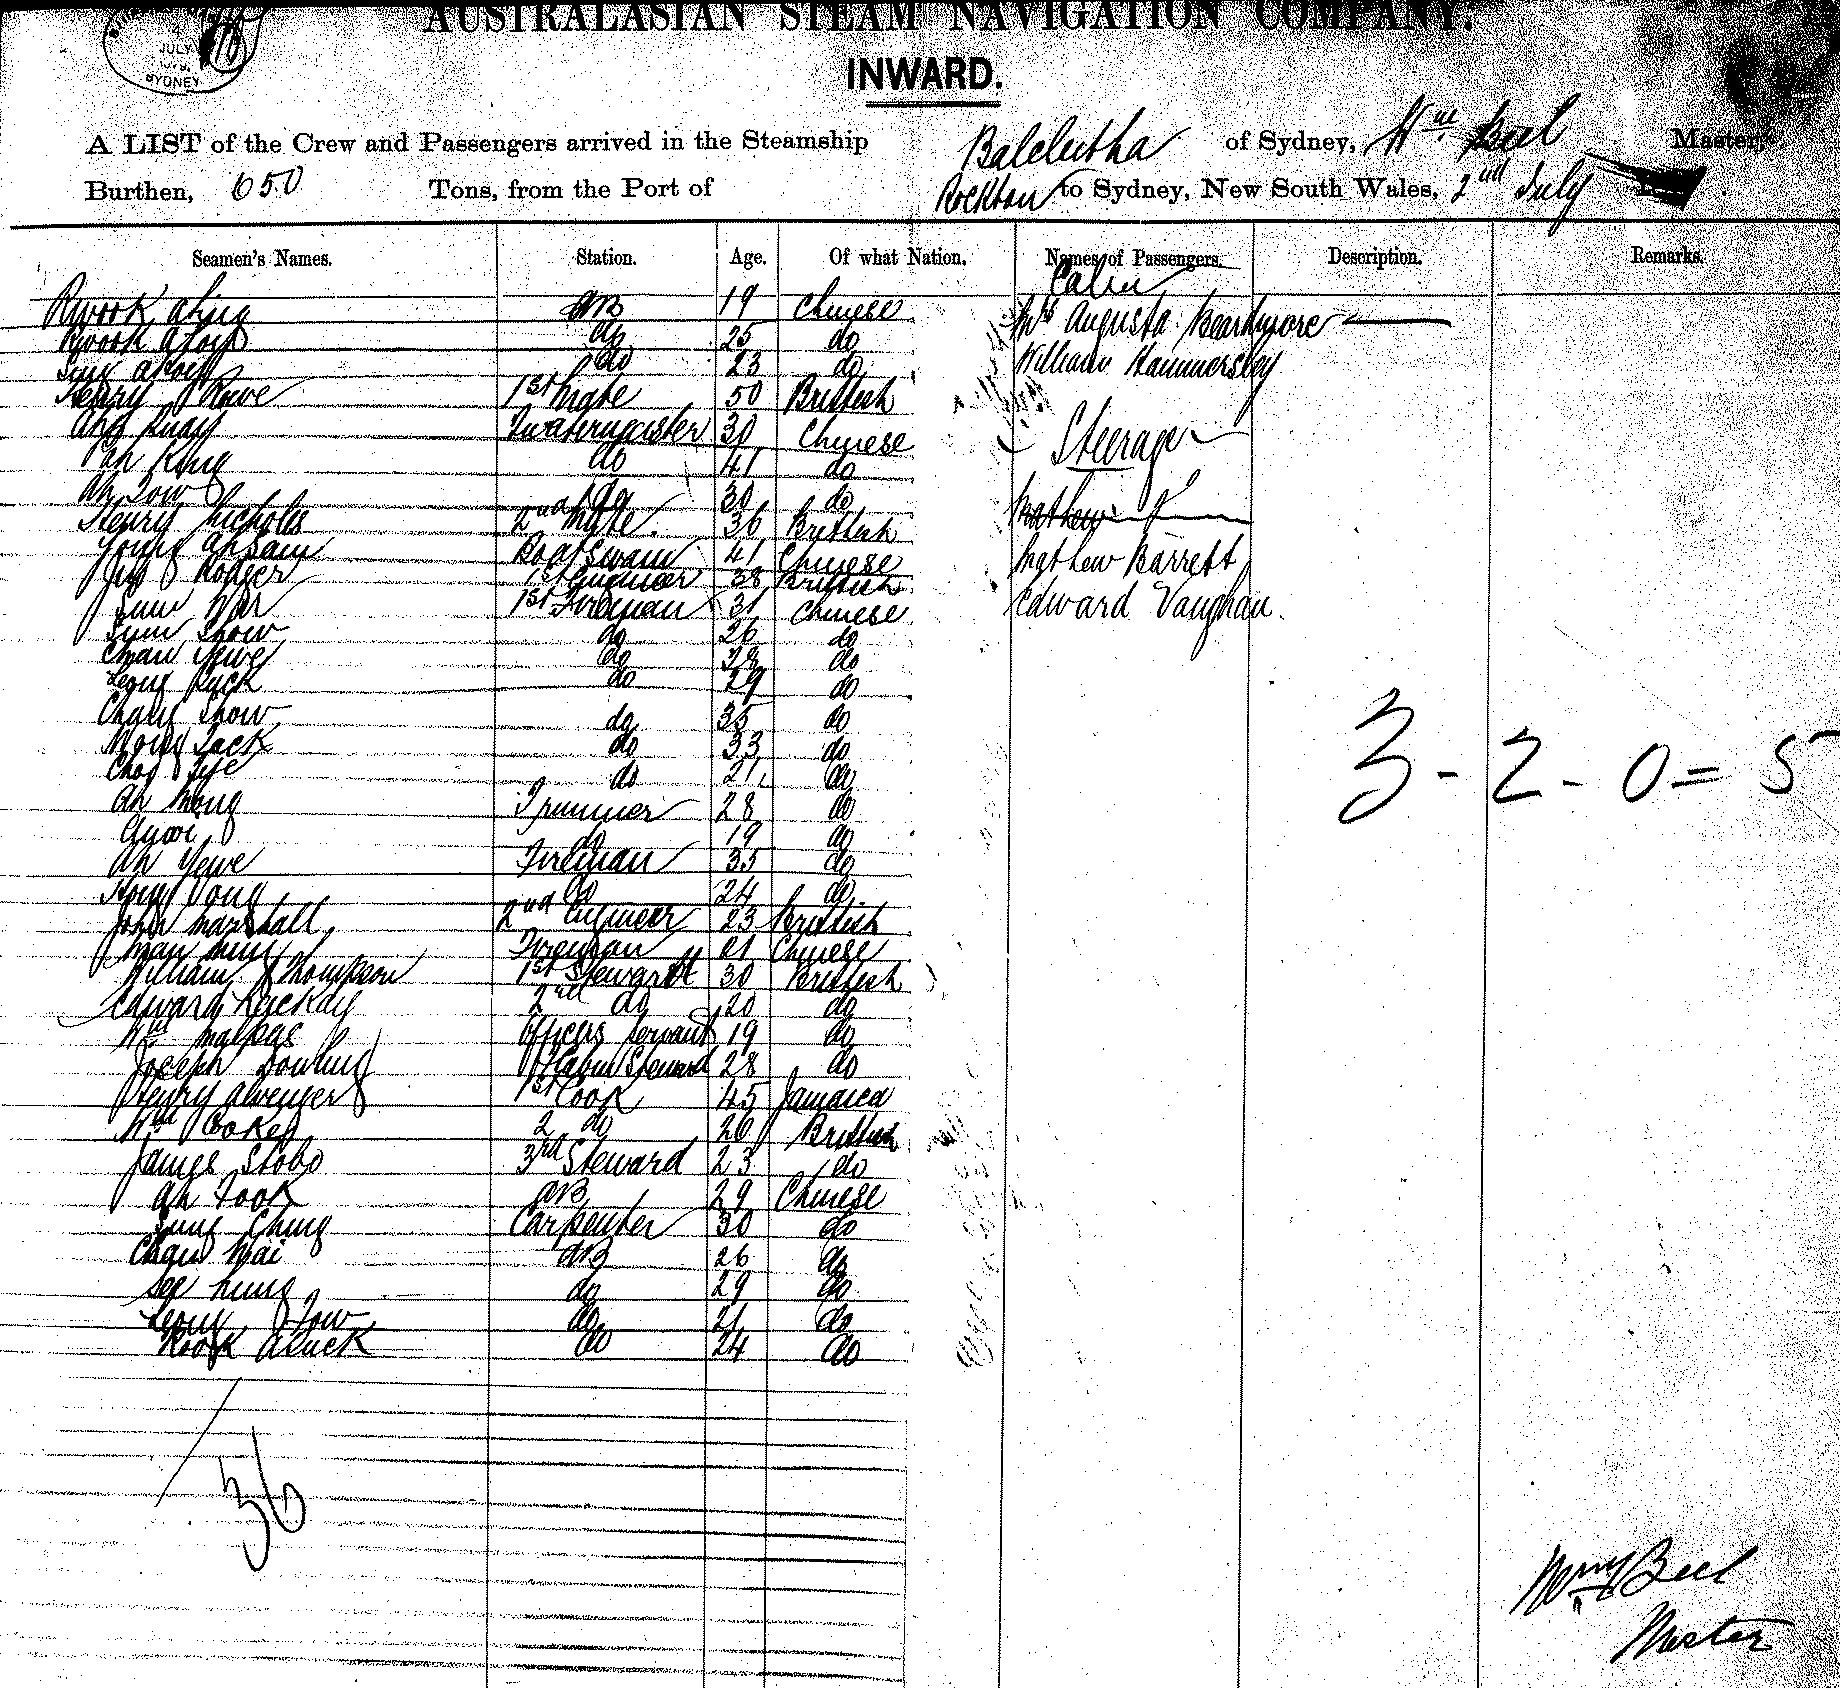 AUSTRALASIAN STEAM NAVIGATION COMPANY.
JULY
SYDNEY
INWARD.
A LIST of the Crew and Passengers arrived in the Steamship Balclutha of Sydney, Wm Beel Master,
Burthen, 650 Tons, from the Port of Rockton to Sydney, New South Wales, 2nd July
Seamen's Names. Station. Age. Of what Nation. Names of Passengers. Description. Remarks.
Cabin
AB 19 Chinese Mrs Augusta Beardmore
do 25 do
do 23 do William Hammersley
Henry Rowe 1st Mate 50 Brittish
30 Chinese Steerage
Ah King do 41 do
Ah Sow do 30 do Mathew
Henry Nicholls 2nd Mate. 36 Brittish
Young Ahsam Boatswain 41 Chinese Mathew Barrett
Rodger 1st Engineer 38 Brittish
1st Fireman 31 Chinese Edward Vaughan.
Sum Show do 26 do
Chan Yewe do do
Leong do 29 do
Chang Show do 35 do
Wong Jack do 33 do 3 - 2 - 0 = 5
do 21 do
Ah Mong Trimmer 28 do
do 19 do
Ah Yewe Fireman 35 do
do 24 do
John Marshall 2nd Engineer 23 Brittish
Fireman 21 Chinese
William Thompson 1st Steward 30 Brittish
Edward 2nd do 20 do
Wm Malpas Officers Servant 19 do
Joseph Dowling Cabin Steward 28 do
Henry 1st Cook 45 Jamaica
Wm 2 do 26 Brittish
James Stobo 3rd Steward 23 do
Ah Took AB 29 Chinese
Sung Ching Carpenter 30 do
Chan Wai AB 26 do
See hung do 29 do
Leong Tow do 21 do
do 24 do
36
Wm Beel
Master